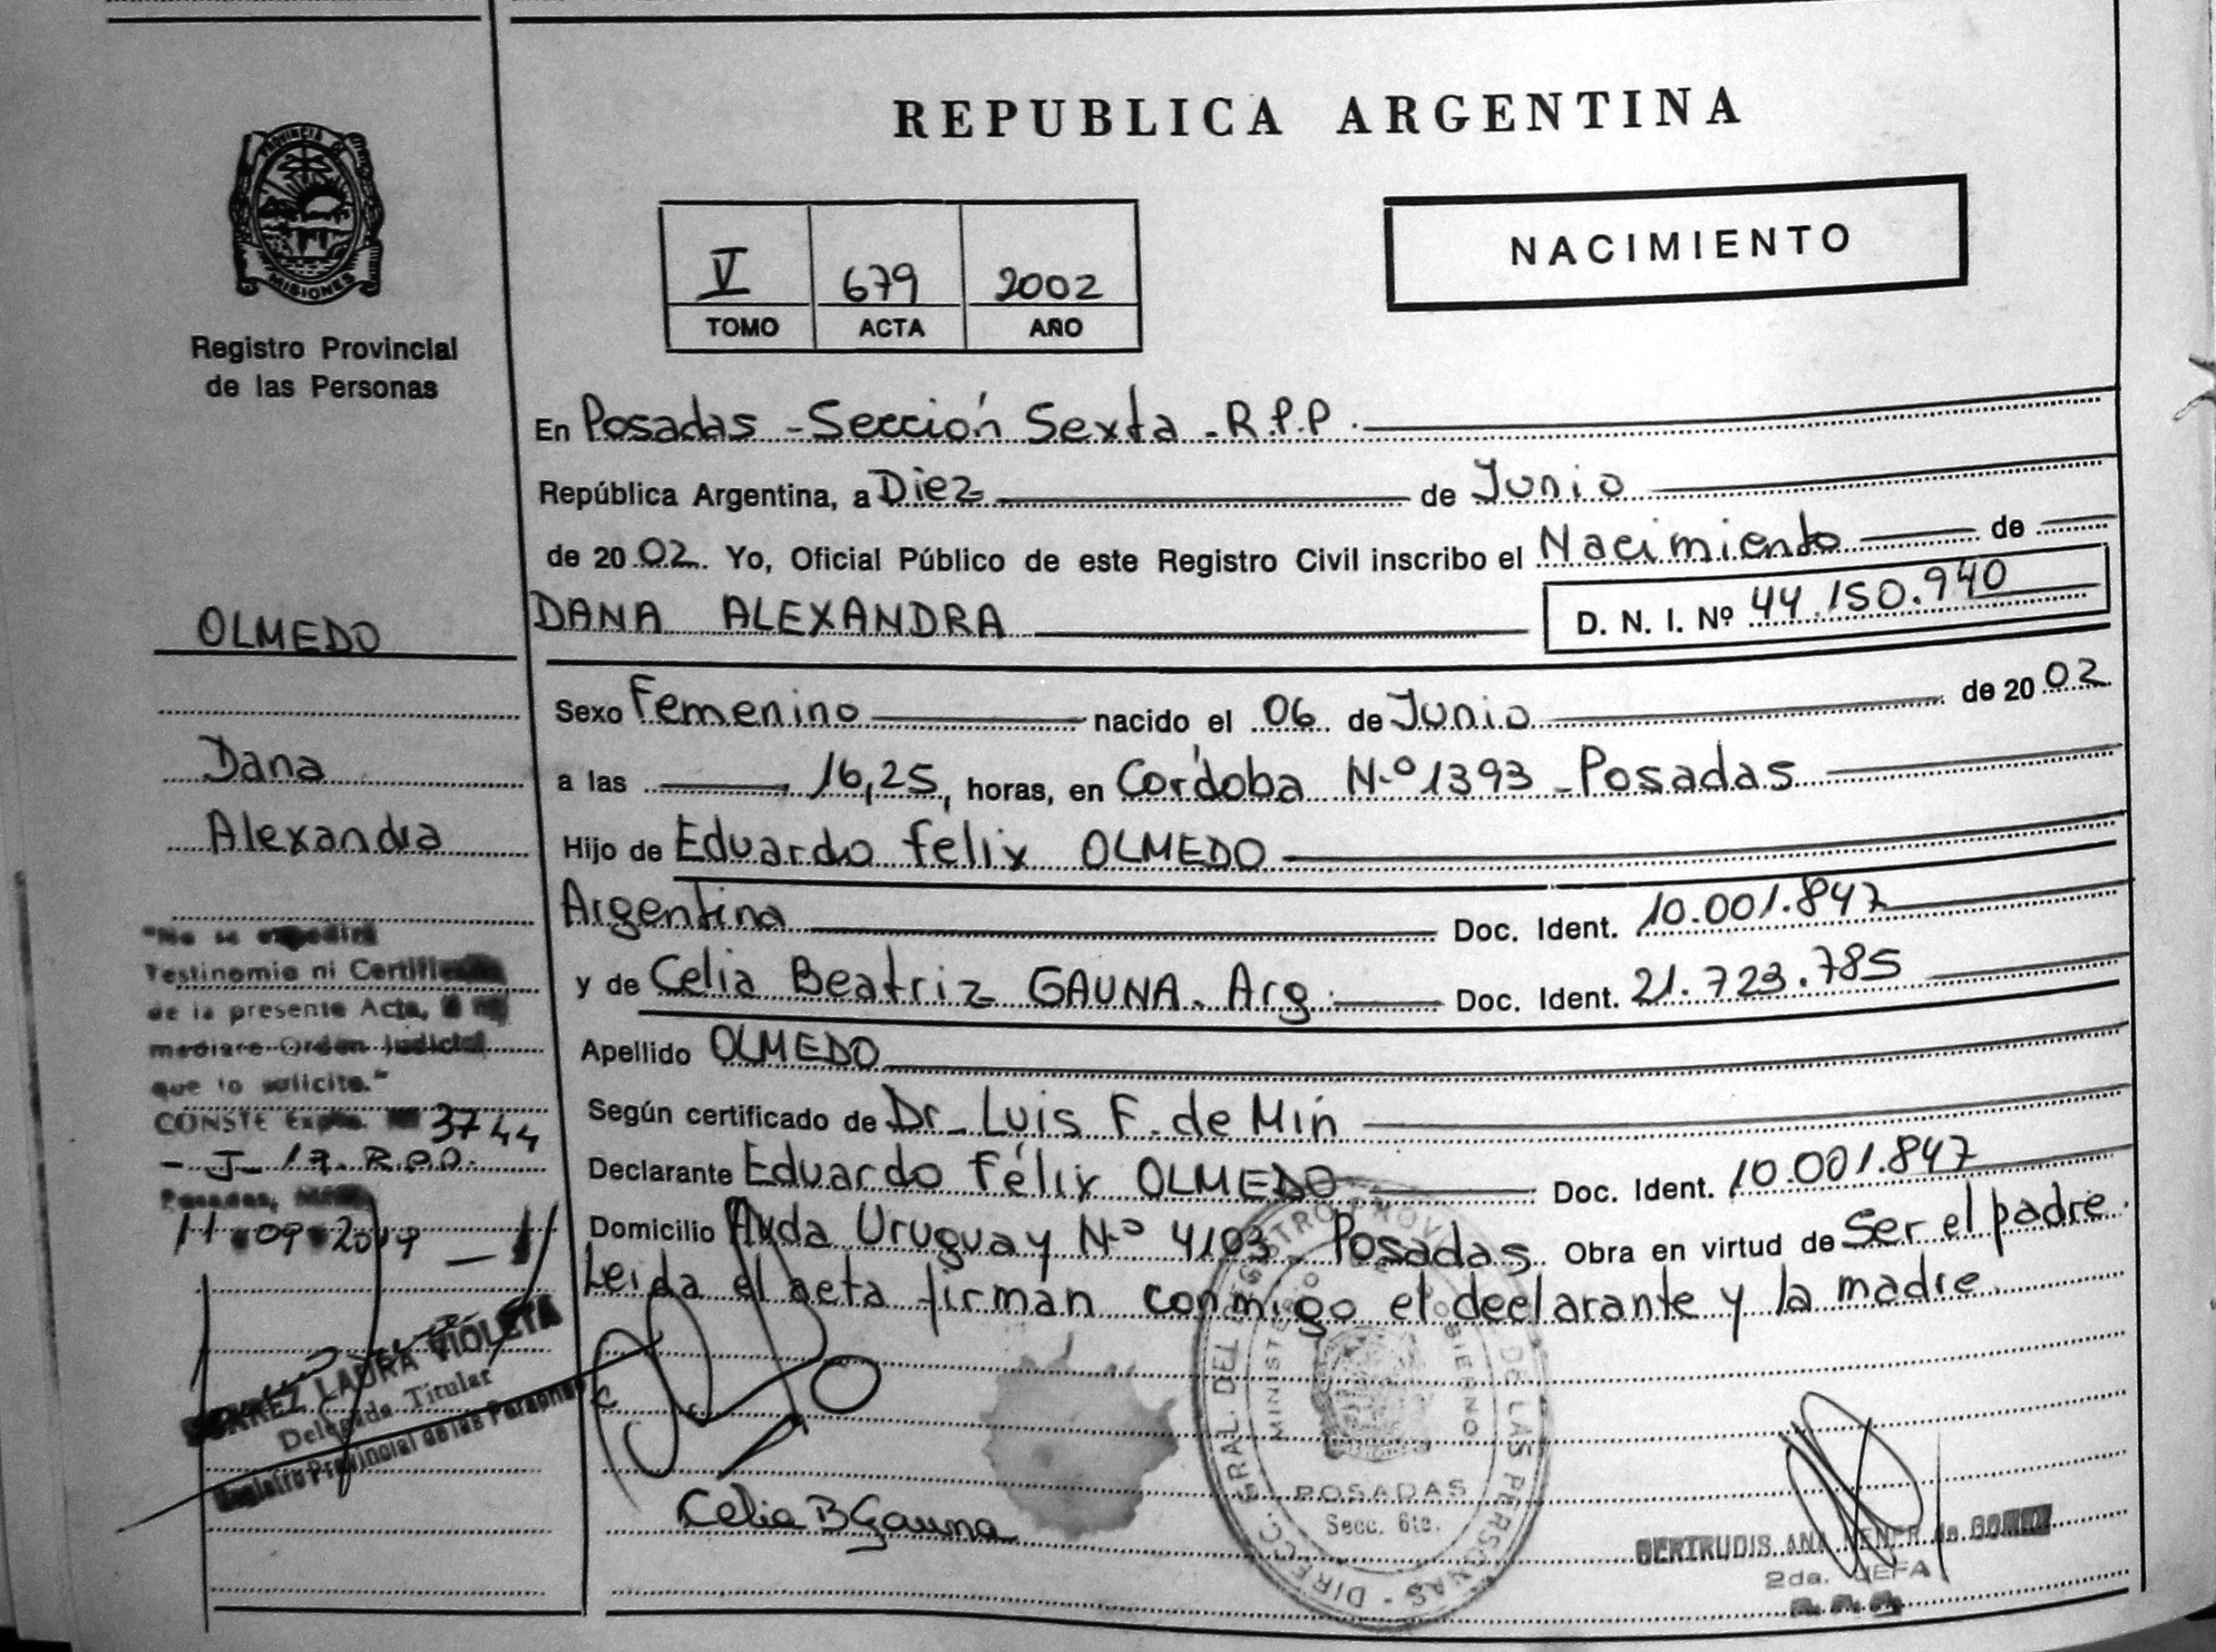 REPUBLICA ARGENTINA
PROVINCIA DE MISIONES
Registro Provincial
de las Personas
V 679 2002
TOMO ACTA AÑO
NACIMIENTO
En Posadas - Sección Sexta - R.P.P.
República Argentina, a Diez de Junio
de 2002. Yo, Oficial Público de este Registro Civil inscribo el Nacimiento de
DANA ALEXANDRA D. N. I. Nº 44.150.940
Sexo Femenino nacido el 06 de Junio de 2002
a las 16,25, horas, en Córdoba N.º 1393 - Posadas
Hijo de Eduardo Felix OLMEDO
Argentina Doc. Ident. 10.001.847
y de Celia Beatriz GAUNA. Arg. Doc. Ident. 21.723.785
Apellido OLMEDO
Según certificado de Dr. Luis F. de Min
Declarante Eduardo Félix OLMEDO Doc. Ident. 10.001.847
Domicilio Avda Uruguay N.º 4103 - Posadas. Obra en virtud de Ser el padre.
Leida el acta firman conmigo el declarante y la madre.
Celia B Gauna
DIRECC. GRAL. DEL REGISTRO PROV. DE LAS PERSONAS
MINISTERIO DE GOBIERNO
POSADAS
Secc. 6ta.
GERTRUDIS ANA de
2da. JEFA
OLMEDO
Dana
Alexandra
"No se expedirá
Testimonio ni
de la presente Acta,
mediare Orden Judicial
que lo solicite."
CONSTE Expte. 3744
Posadas,
11 09 2019
LAURA VIOLETA
Delegada Titular
Registro Provincial de las Personas